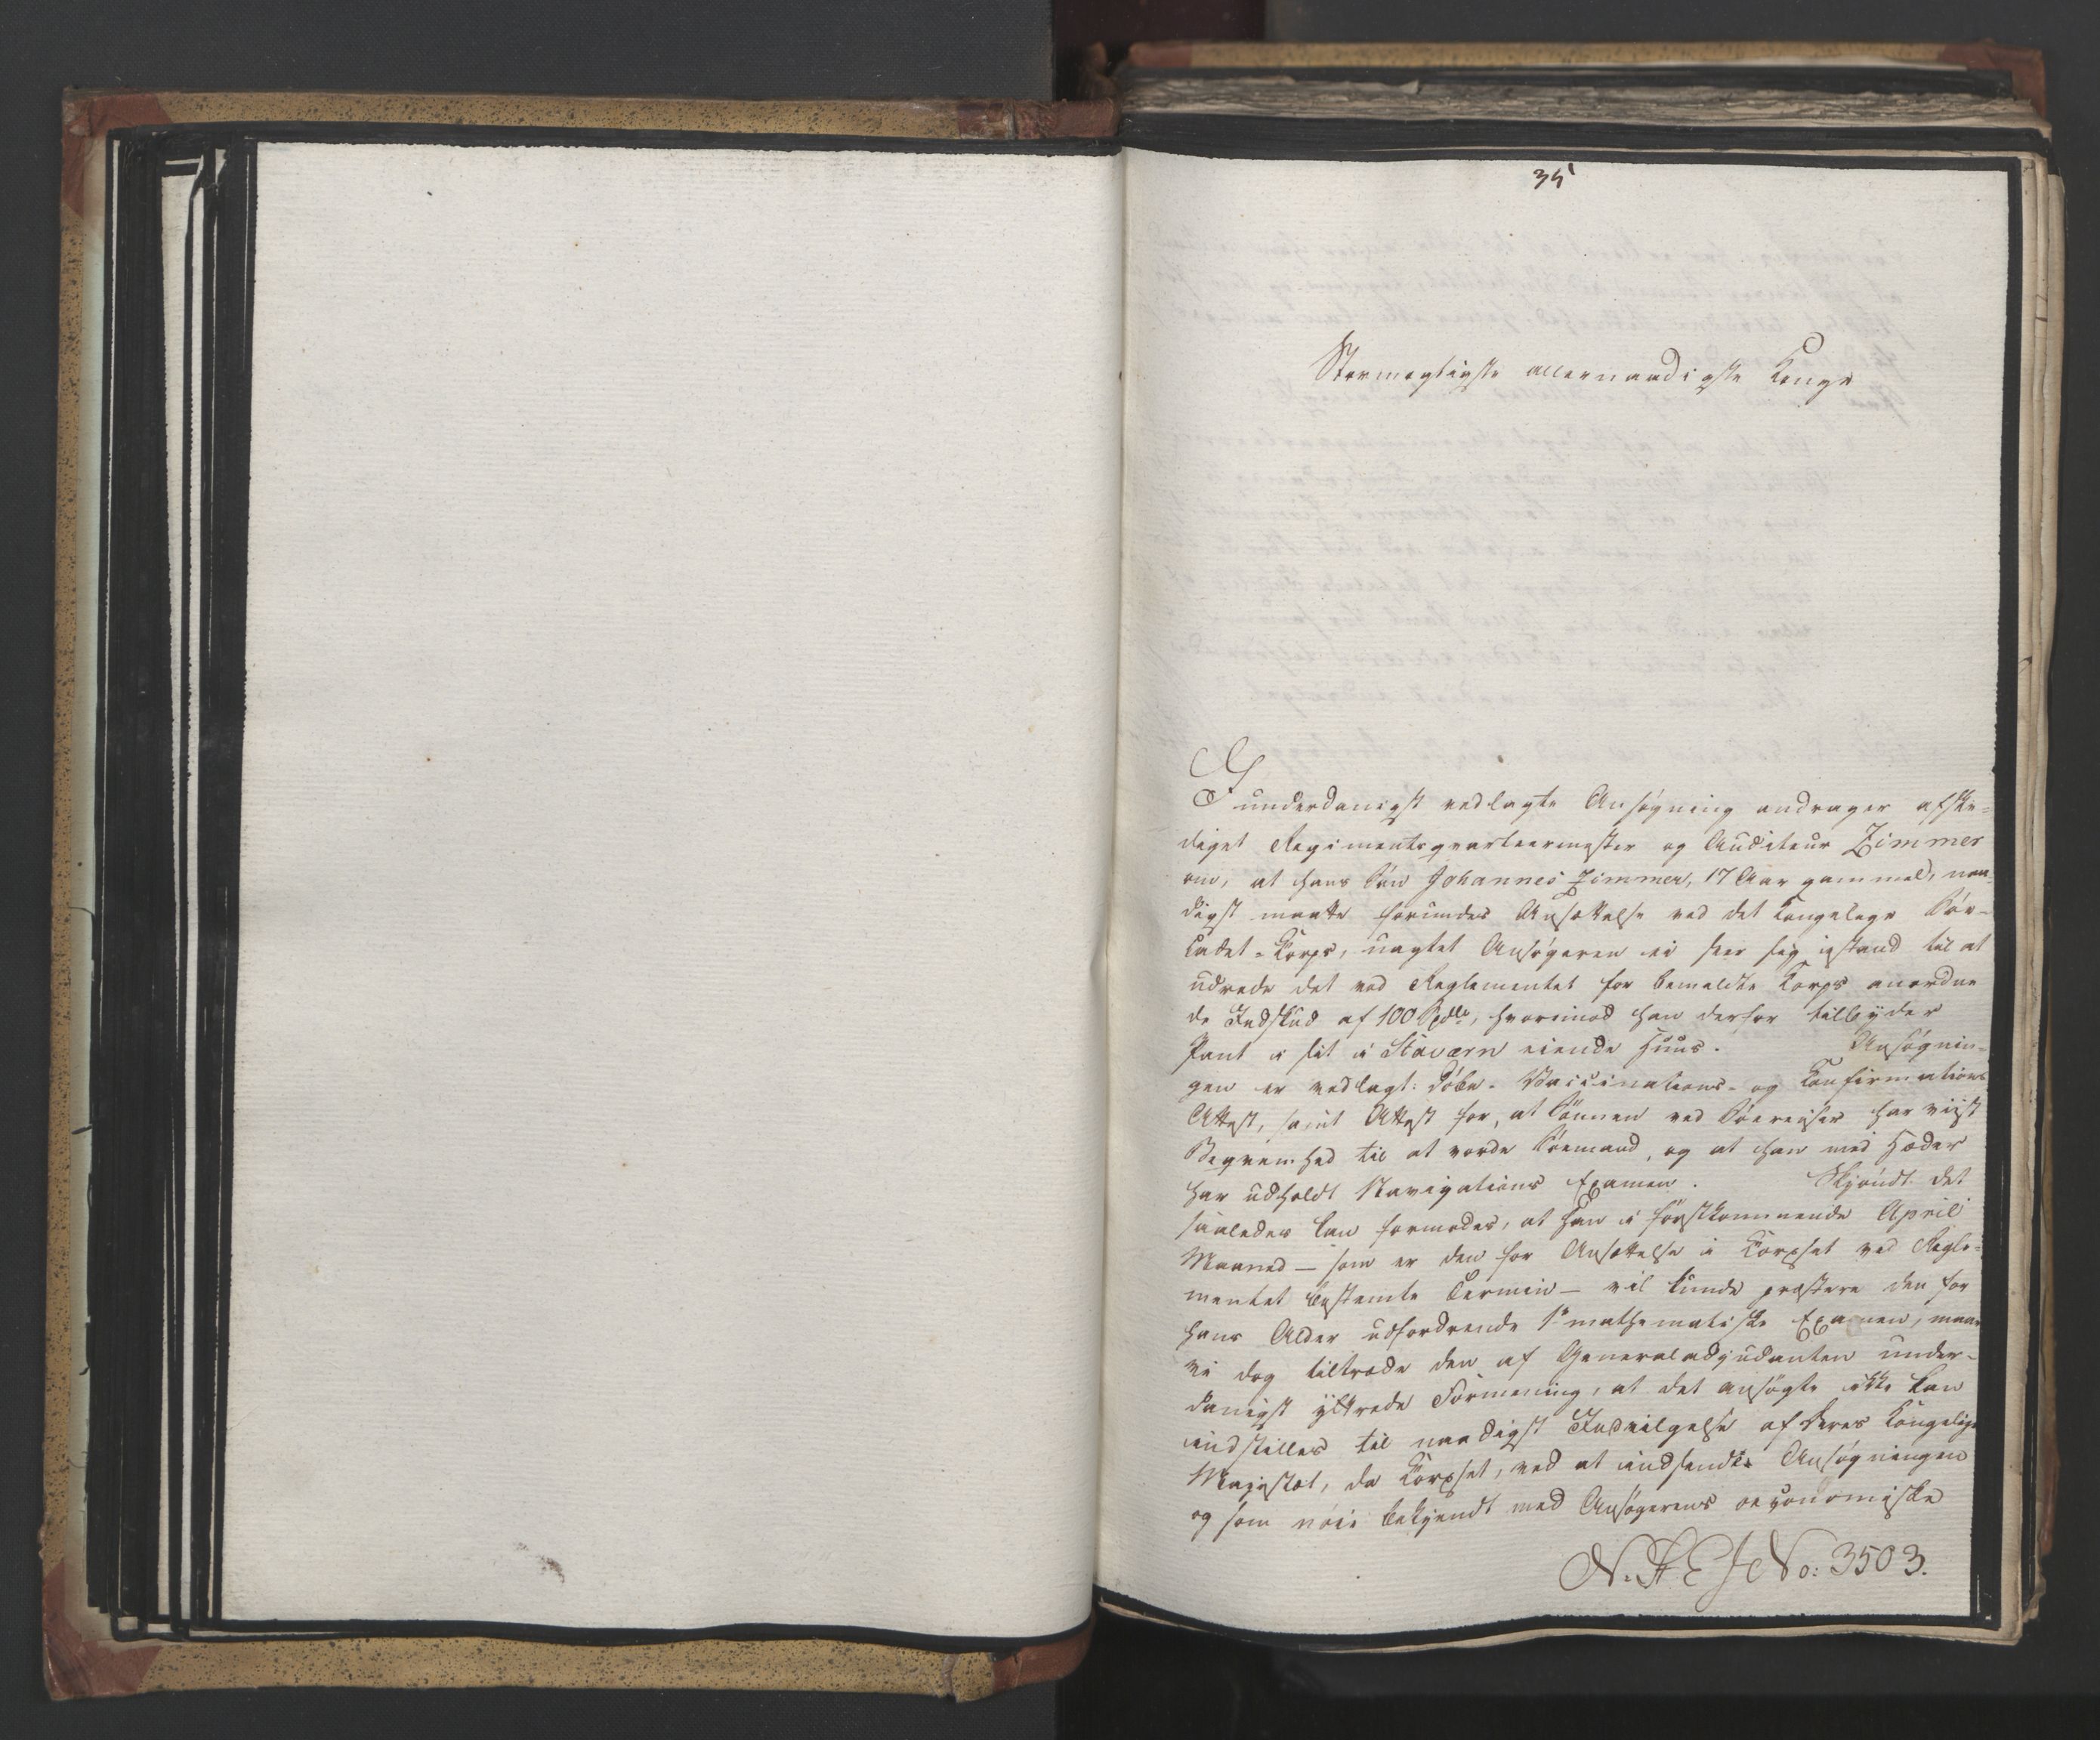 35
Stormægtigste allernaadigste Konge
I underdanigst vedlagte Ansøgning andrager afske-
diget Regimentsqvarteermester og Auditeur Zimmer
om, at hans Søn Johannes Zimmer, 17 Aar gammel, naa-
digst maatte forundes Ansættelse ved det Kongelige Søe-
Cadet-Korps, uagtet Ansøgeren ei seer sig istand til at
udrede det ved Reglementet for bemeldte Korps anordne
de Indskud af 100 Spdlr, hvorimod han derfor tilbyder
Pant i sit i Staværn eiende Huus. Ansøgnin-
gen er vedlagt: Døbe- Vaccinations- og Konfirmations
Attest, samt Attest for, at Sønnen ved Søereiser har viist
Beqvemhed til at vorde Søemand, og at han med Hæder
har udholdt Navigations Examen. Skjøndt det
saaledes kan formodes, at han i førstkommende April
Maaned — som er den for Ansættelse i Korpset ved Regle-
mentet bestemte Termin — vil kunde præstere den for
hans Alder udfordrende 1ste mathematiske Examen, maae
vi dog tiltræde den af Generaladjudanten under-
danigst yttrede Formening, at det ansøgte ikke kan
indstilles til naadigst Indvilgelse af Deres Kongelige
Majestæt, da Korpset, ved at indsende Ansøgningen
og som nøie bekjendt med Ansøgerens oeconomiske
No: 3503.